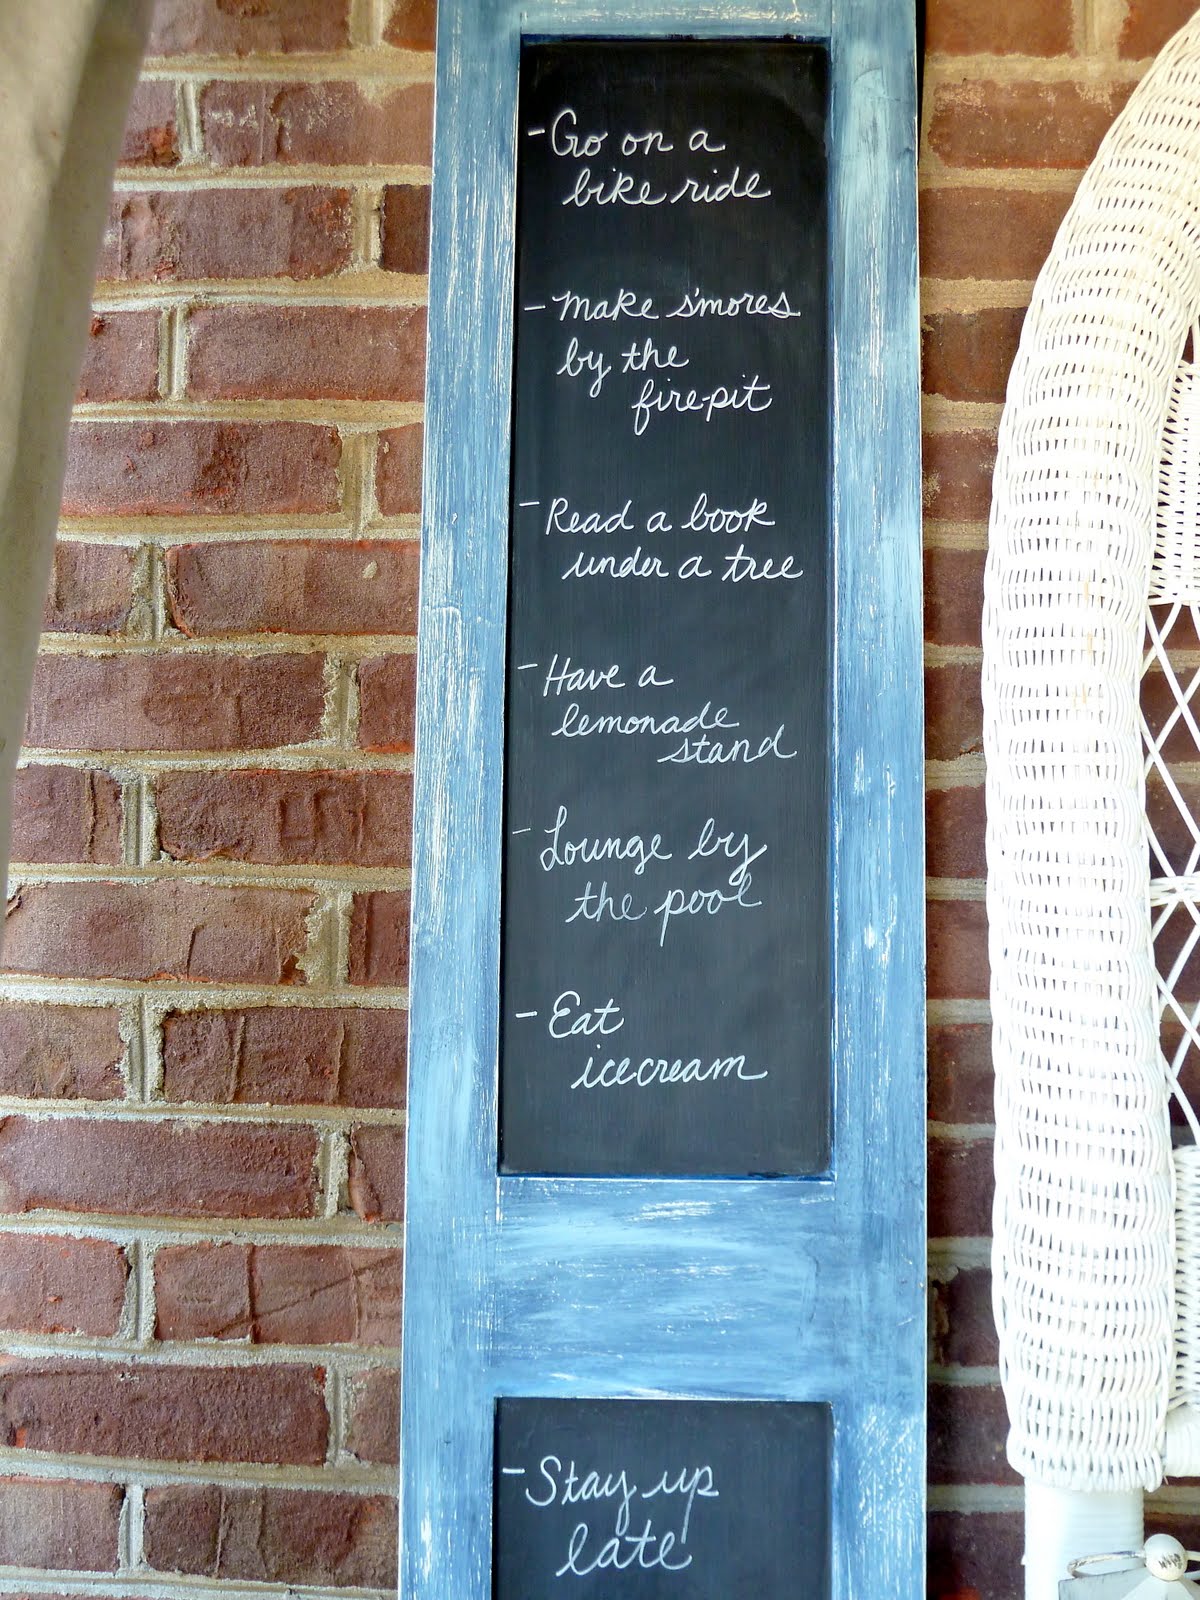 - Go on a
bike ride
- Make s'mores
by the
fire-pit
- Read a book
under a tree
- Have a
lemonade
stand
- Lounge by
the pool
- Eat
icecream
- Stay up
late